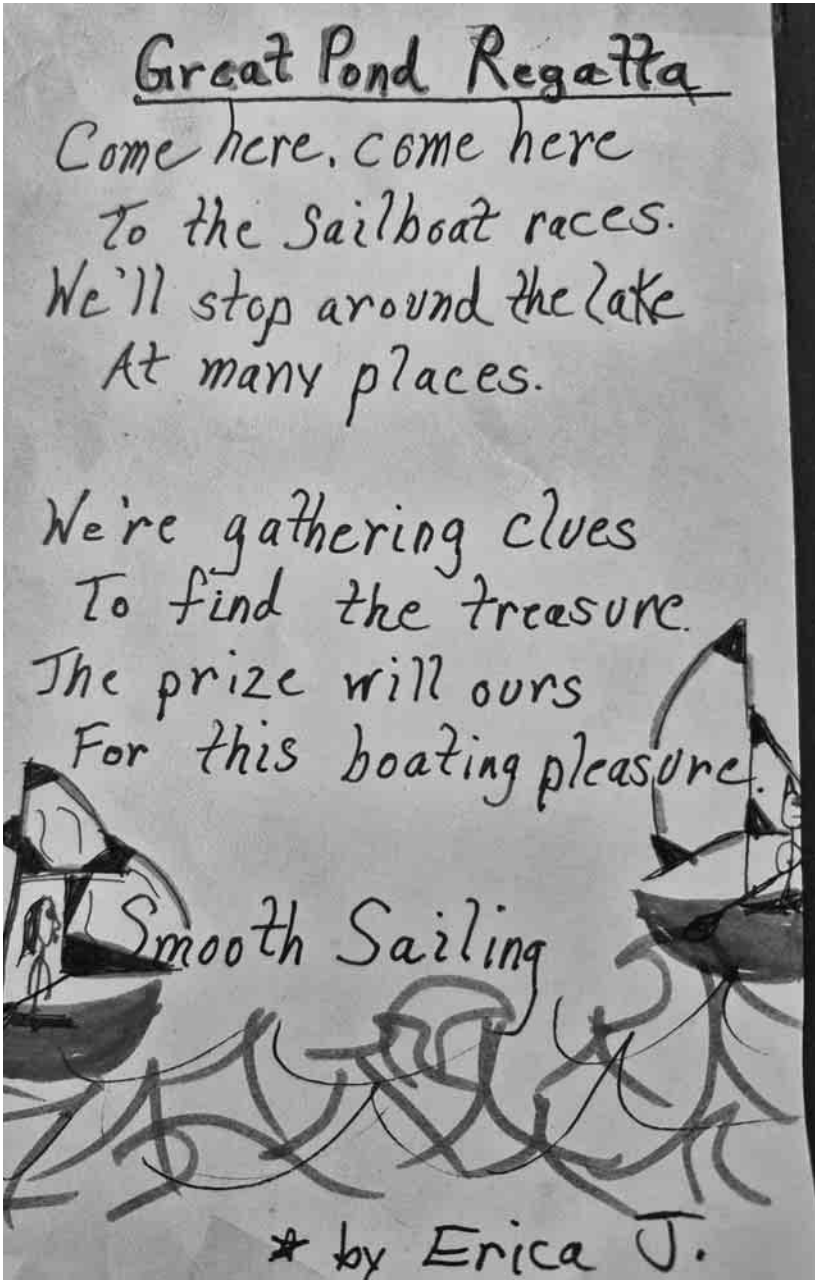 Great Pond Regatta
Come here, come here
To the Sailboat races.
We'll stop around the lake
At many places.
We're gathering clues
To find the treasure.
The prize will ours
For this boating pleasure.
Smooth Sailing
* by Erica J.